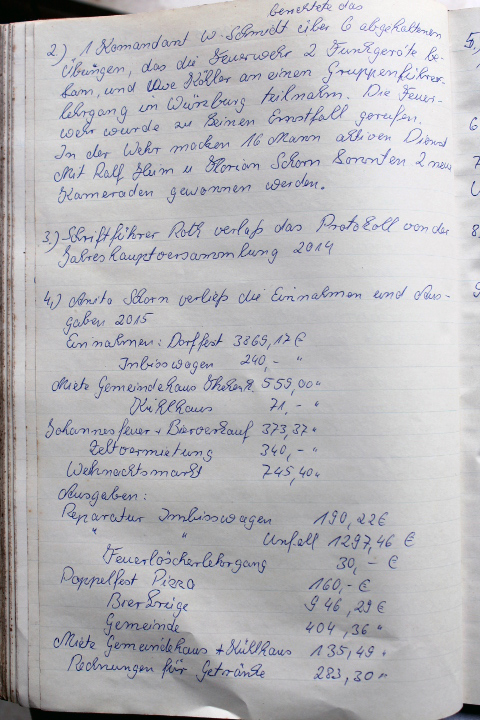 berichtete das
2) 1 Komandant W. Schmidt über 6 abgehaltenen
Übungen, das die Feuerwehr 2 Funkgeräte be-
kam, und Uwe Köhler an einen Gruppenführer-
lehrgang in Würzburg teilnahm. Die Feuer-
wehr wurde zu keinen Ernstfall gerufen.
In der Wehr machen 16 Mann aktiven Dienst
Mit Ralf Hum u Florian Schorn konnten 2 neue
Kameraden gewonnen werden.
3.) Schriftführer Roth verlaß das Protokoll von der
Jahreshauptversammlung 2014
4.) Anita Schorn verließ die Einnahmen und Aus-
gaben 2015
Einnahmen: Dorffest 3869,17 €
Imbisswagen 240,- "
Miete Gemeindehaus 559,00 "
Kühlhaus 71,- "
Johannesfeuer + Bierverkauf 373,37 "
Zeltvermietung 340,- "
Weihnachtsmarkt 745,40 "
Ausgaben:
Reparatur Imbisswagen 190,22 €
" " Unfall 1297,46 €
Feuerlöscherlehrgang 30,- €
Pizza 160,- €
Bierkreige 946,29 €
Gemeinde 404,36 "
Miete Gemeindehaus + Kühlhaus 135,49 "
Rechnungen für Getränke 283,30 "
5.
6
7
8
9